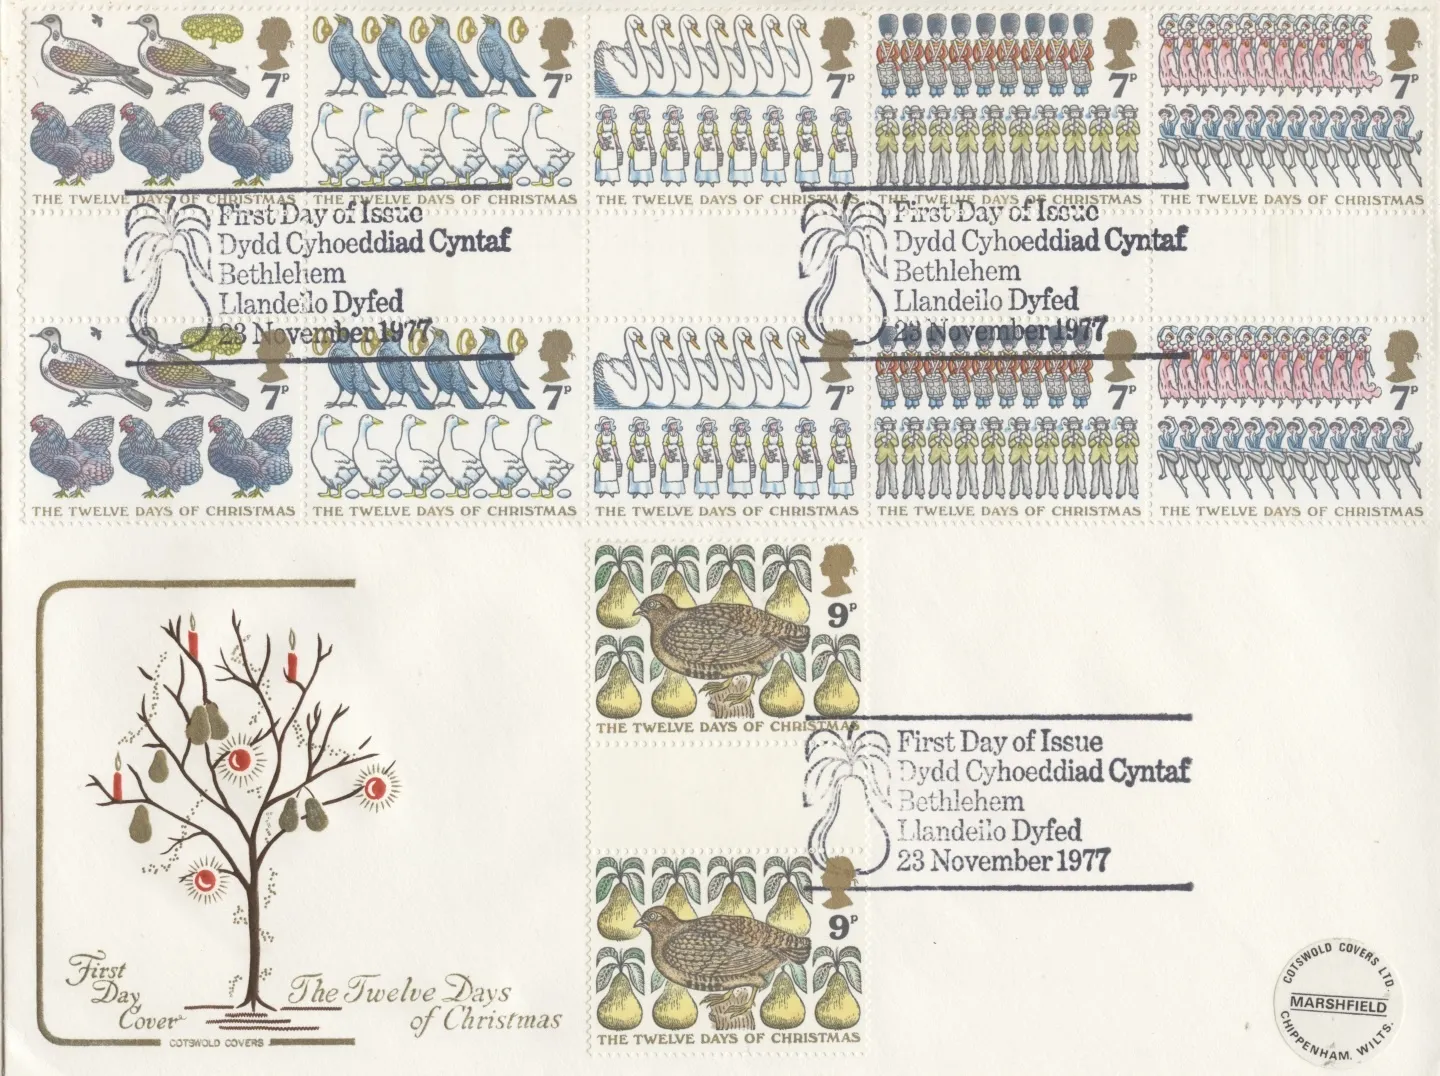 7P
7P
7P
7P
7P
THE TWELVE DAYS OF CHRISTMAS
THE TWELVE DAYS OF CHRISTMAS
THE TWELVE DAYS OF CHRISTMAS
THE TWELVE DAYS OF CHRISTMAS
THE TWELVE DAYS OF CHRISTMAS
First Day of Issue
Dydd Cyhoeddiad Cyntaf
Bethlehem
Llandeilo Dyfed
23 November 1977
First Day of Issue
Dydd Cyhoeddiad Cyntaf
Bethlehem
Llandeilo Dyfed
23 November 1977
7P
7P
7P
7P
7P
THE TWELVE DAYS OF CHRISTMAS
THE TWELVE DAYS OF CHRISTMAS
THE TWELVE DAYS OF CHRISTMAS
THE TWELVE DAYS OF CHRISTMAS
THE TWELVE DAYS OF CHRISTMAS
9P
THE TWELVE DAYS OF CHRISTMAS
First Day of Issue
Dydd Cyhoeddiad Cyntaf
Bethlehem
Llandeilo Dyfed
23 November 1977
9P
THE TWELVE DAYS OF CHRISTMAS
First
Day
Cover
The Twelve Days
of Christmas
COTSWOLD COVERS
COTSWOLD COVERS LTD.
MARSHFIELD
CHIPPENHAM. WILTS.